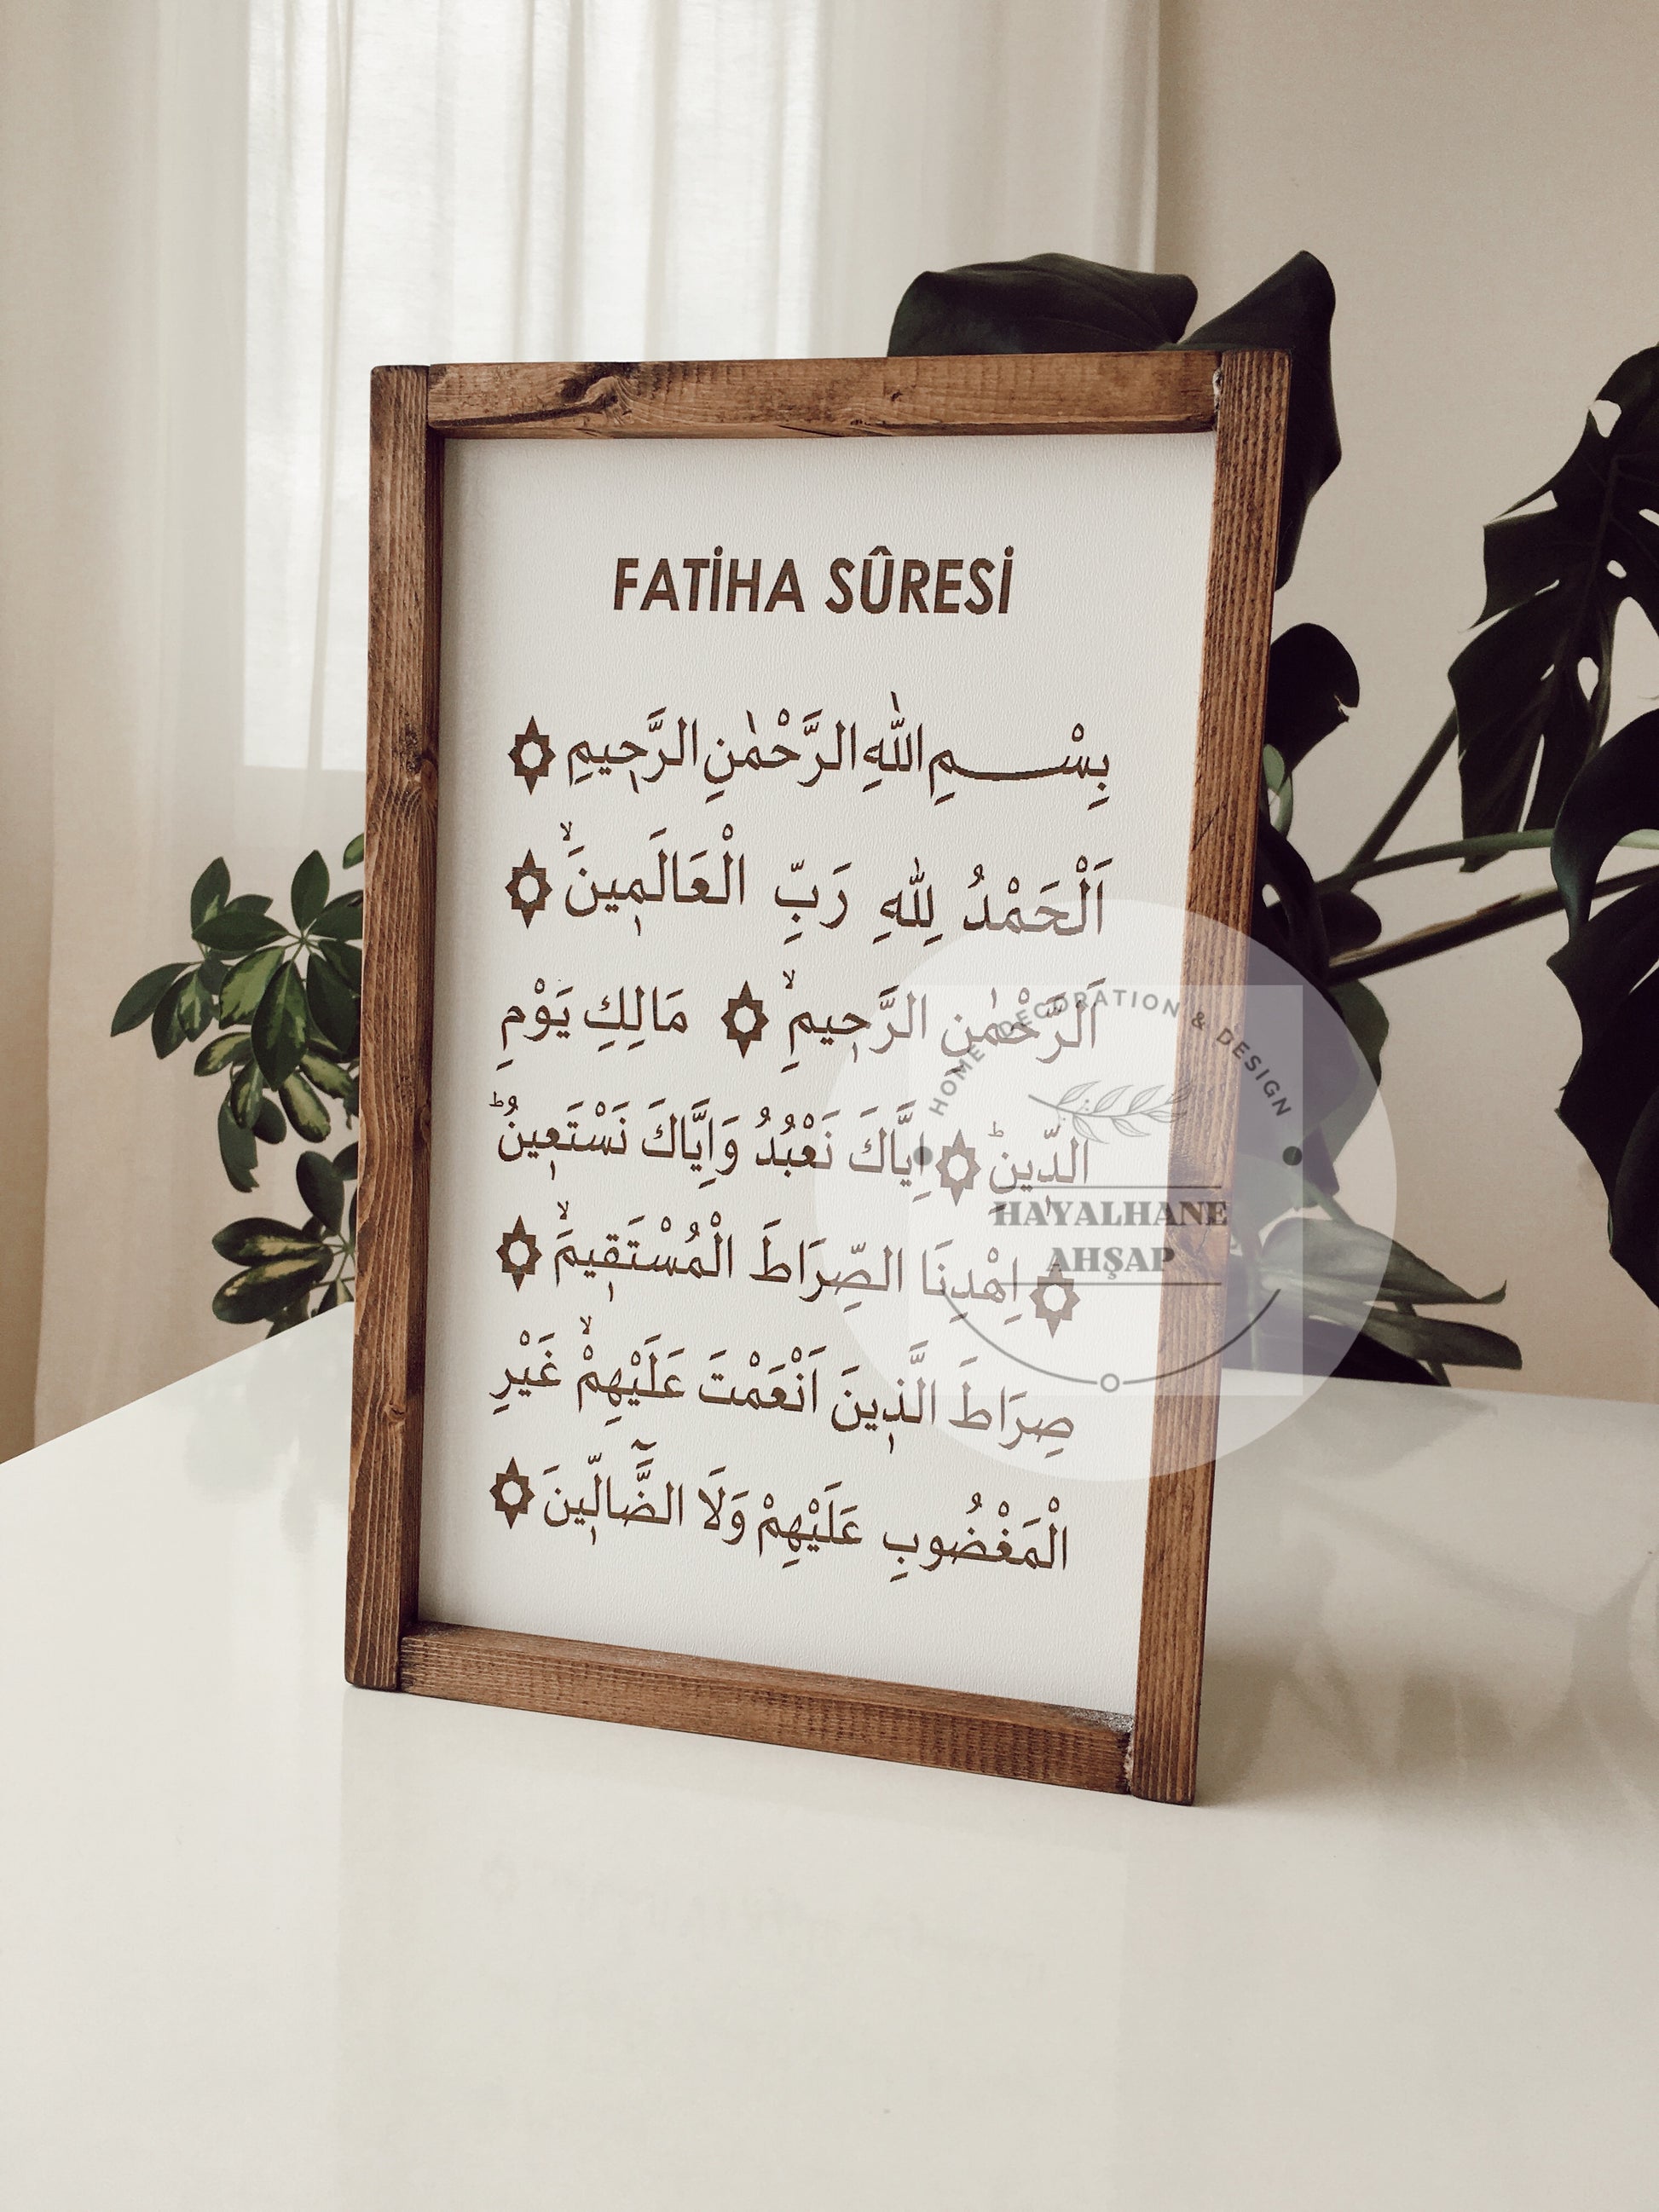 FATİHA SÛRESİ
بِسْــــمِ اللّٰهِ الرَّحْمٰنِ الرَّح۪يمِ ۞
اَلْحَمْدُ لِلّٰهِ رَبِّ الْعَالَم۪ينَۙ ۞
اَلرَّحْمٰنِ الرَّح۪يمِۙ ۞ مَالِكِ يَوْمِ
الدّ۪ينِۜ ۞ اِيَّاكَ نَعْبُدُ وَاِيَّاكَ نَسْتَع۪ينُۜ
۞ اِهْدِنَا الصِّرَاطَ الْمُسْتَق۪يمَۙ ۞
صِرَاطَ الَّذ۪ينَ اَنْعَمْتَ عَلَيْهِمْۙ غَيْرِ
الْمَغْضُوبِ عَلَيْهِمْ وَلَا الضَّٓالّ۪ينَ ۞
HOME DECORATION & DESIGN
HAYALHANE
AHŞAP